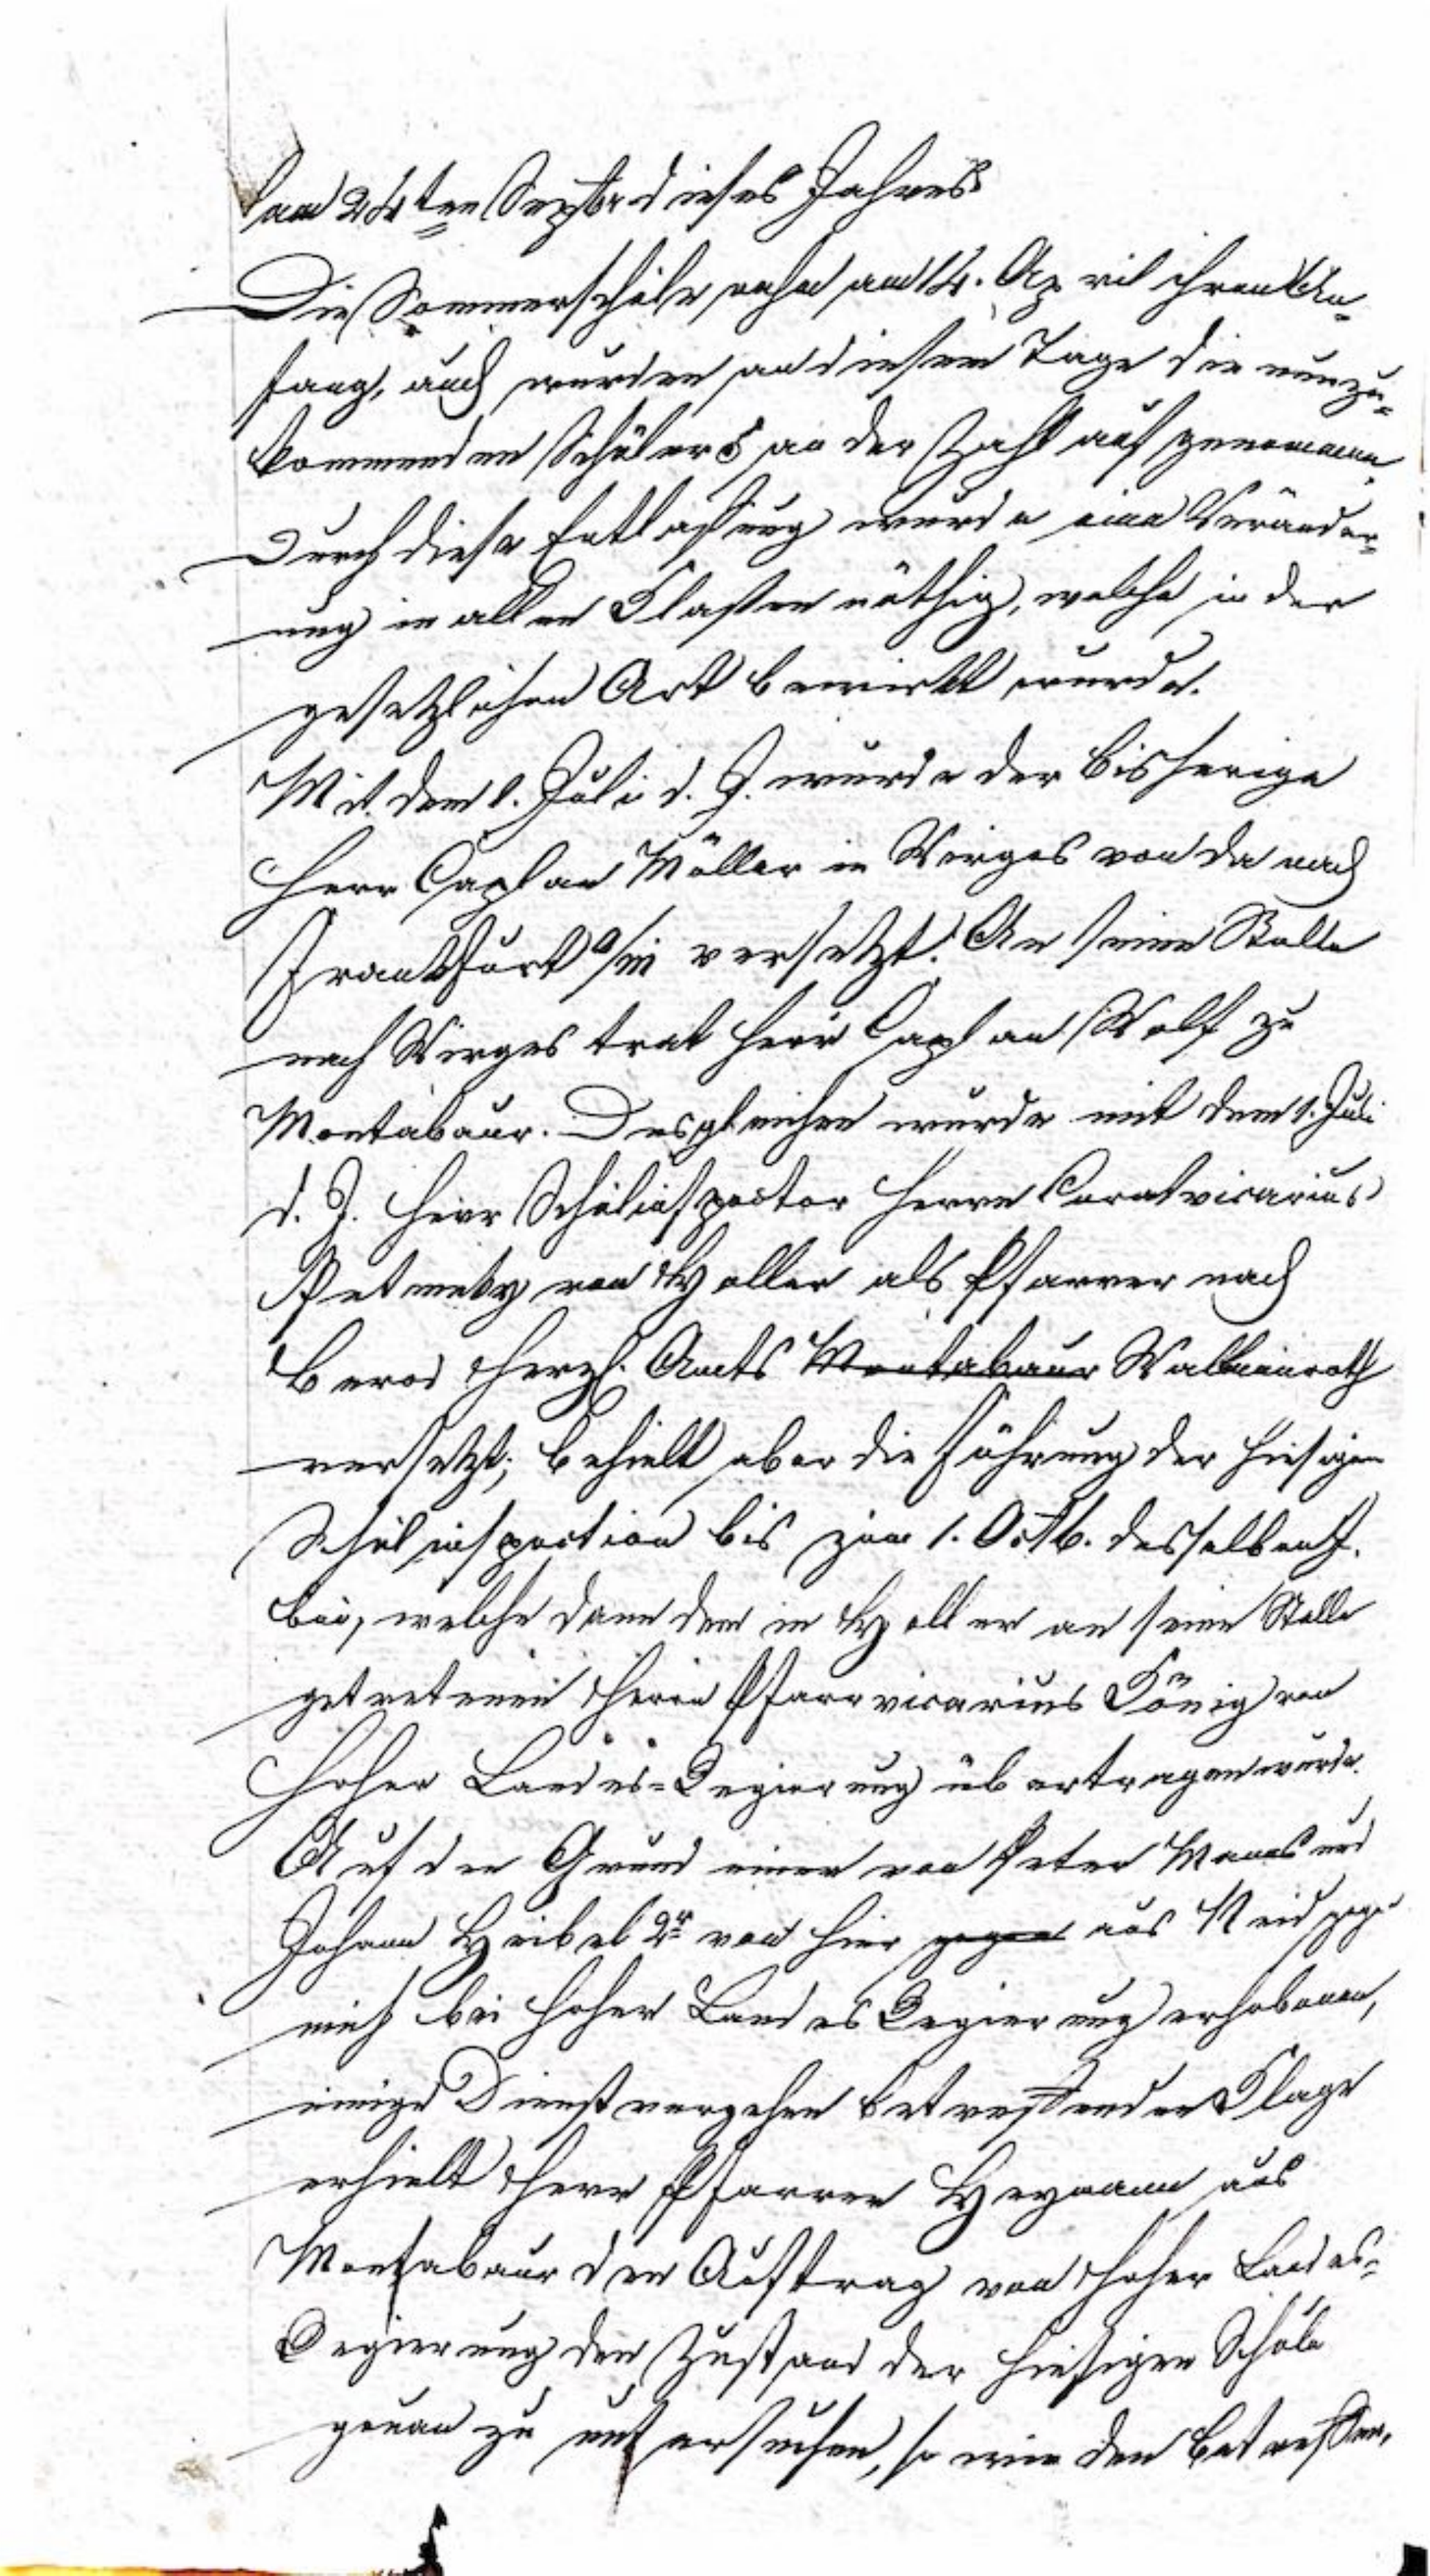 am 24ten Septbr dieses Jahres
Die Sommerschule nahm am 14. April ihren An=
fang, auch wurden an diesem Tage die neuzu=
kommenden Schüler 5 an der Zahl aufgenommen.
Durch diese Entlassung wurde eine Veränder=
ung in allen Klassen nöthig, welche in der
gesetzlichen Art bewirkt wurde.
Mit dem 1. Juli d. J. wurde der bisherige
Herr Caplan Müller in Wirges von da nach
Frankfurt a/m versetzt. An seine Stelle
nach Wirges trat Herr Caplan Wolf zu
Montabaur. Desgleichen wurde mit dem 1. Juli
d. J. Herr Schulinspector Herrn
von Holler als Pfarrer nach
Berod Herzl. Amts Montabaur Wallmeroth
versetzt; behielt aber die Führung der hiesigen
Schulinspection bis zum 1. Octb. desselben J.
bei, welche dann dem in Holler an seine Stelle
getretenen Herrn Pfarrvicarius König von
Hoher Landes=Regierung übertragen wurde.
Auf den Grund einer von Peter und
Johann Heibel 2r von hier gegen aus Neid gegen
mich bei hoher Landes Regierung erhobenen,
einige Dienstvergehen betreffenden Klage
erhielt Herr Pfarrer Heymann aus
Montabaur den Auftrag von hoher Landes=
Regierung den Zustand der hiesigen Schule
genau zu untersuchen, so wie den betreffen,